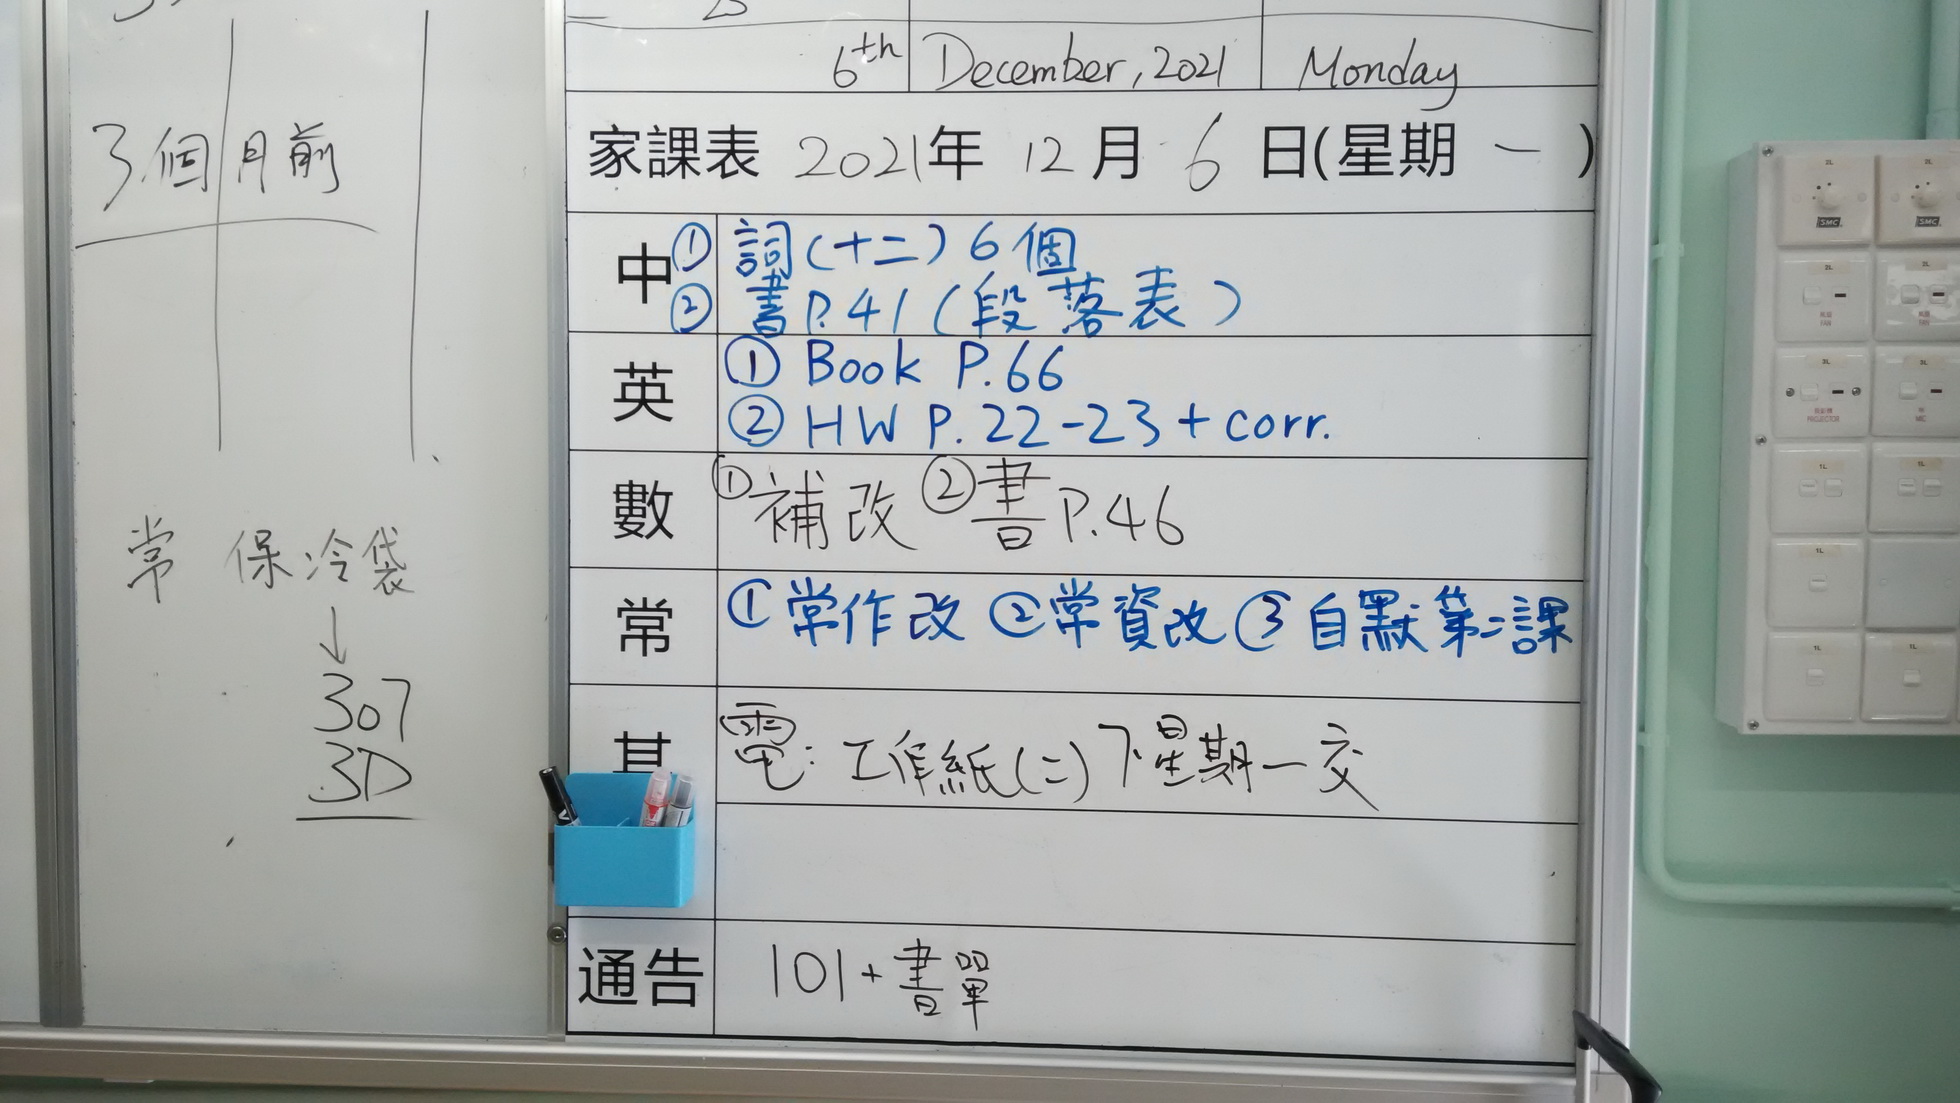 3個月前
常 保冷袋
↓
307
3D
6th December, 2021 Monday
家課表 2021年 12月 6日(星期一)
中 ① 詞(十二)6個
② 書P.41(段落表)
英 ① Book P.66
② HW P.22-23 + corr.
數 ①補改 ②書P.46
常 ①常作改 ②常資改 ③自默第二課
其 電: 工作紙(二)下星期一交
通告 101+書單
SMC
SMC